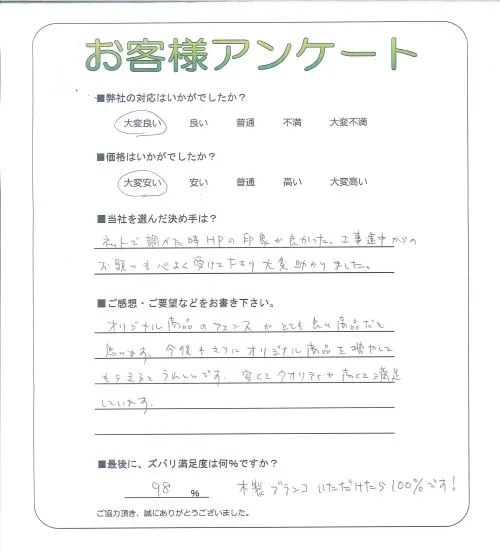 お客様アンケート
■弊社の対応はいかがでしたか？
大変良い 良い 普通 不満 大変不満
■価格はいかがでしたか？
大変安い 安い 普通 高い 大変高い
■当社を選んだ決め手は？
ネットで調べた時HPの印象が良かった。工事途中からの
お願いも心よく受けて下さり大変助かりました。
■ご感想・ご要望などをお書き下さい。
オリジナル商品のフェンスがとても良い商品だと
思います。今後もさらにオリジナル商品を増やして
もらえるとうれしいです。安くてクオリティも高くて満足
しています。
■最後に、ズバリ満足度は何％ですか？
98 % 木製ブランコいただけたら100%です!
ご協力頂き、誠にありがとうございました。